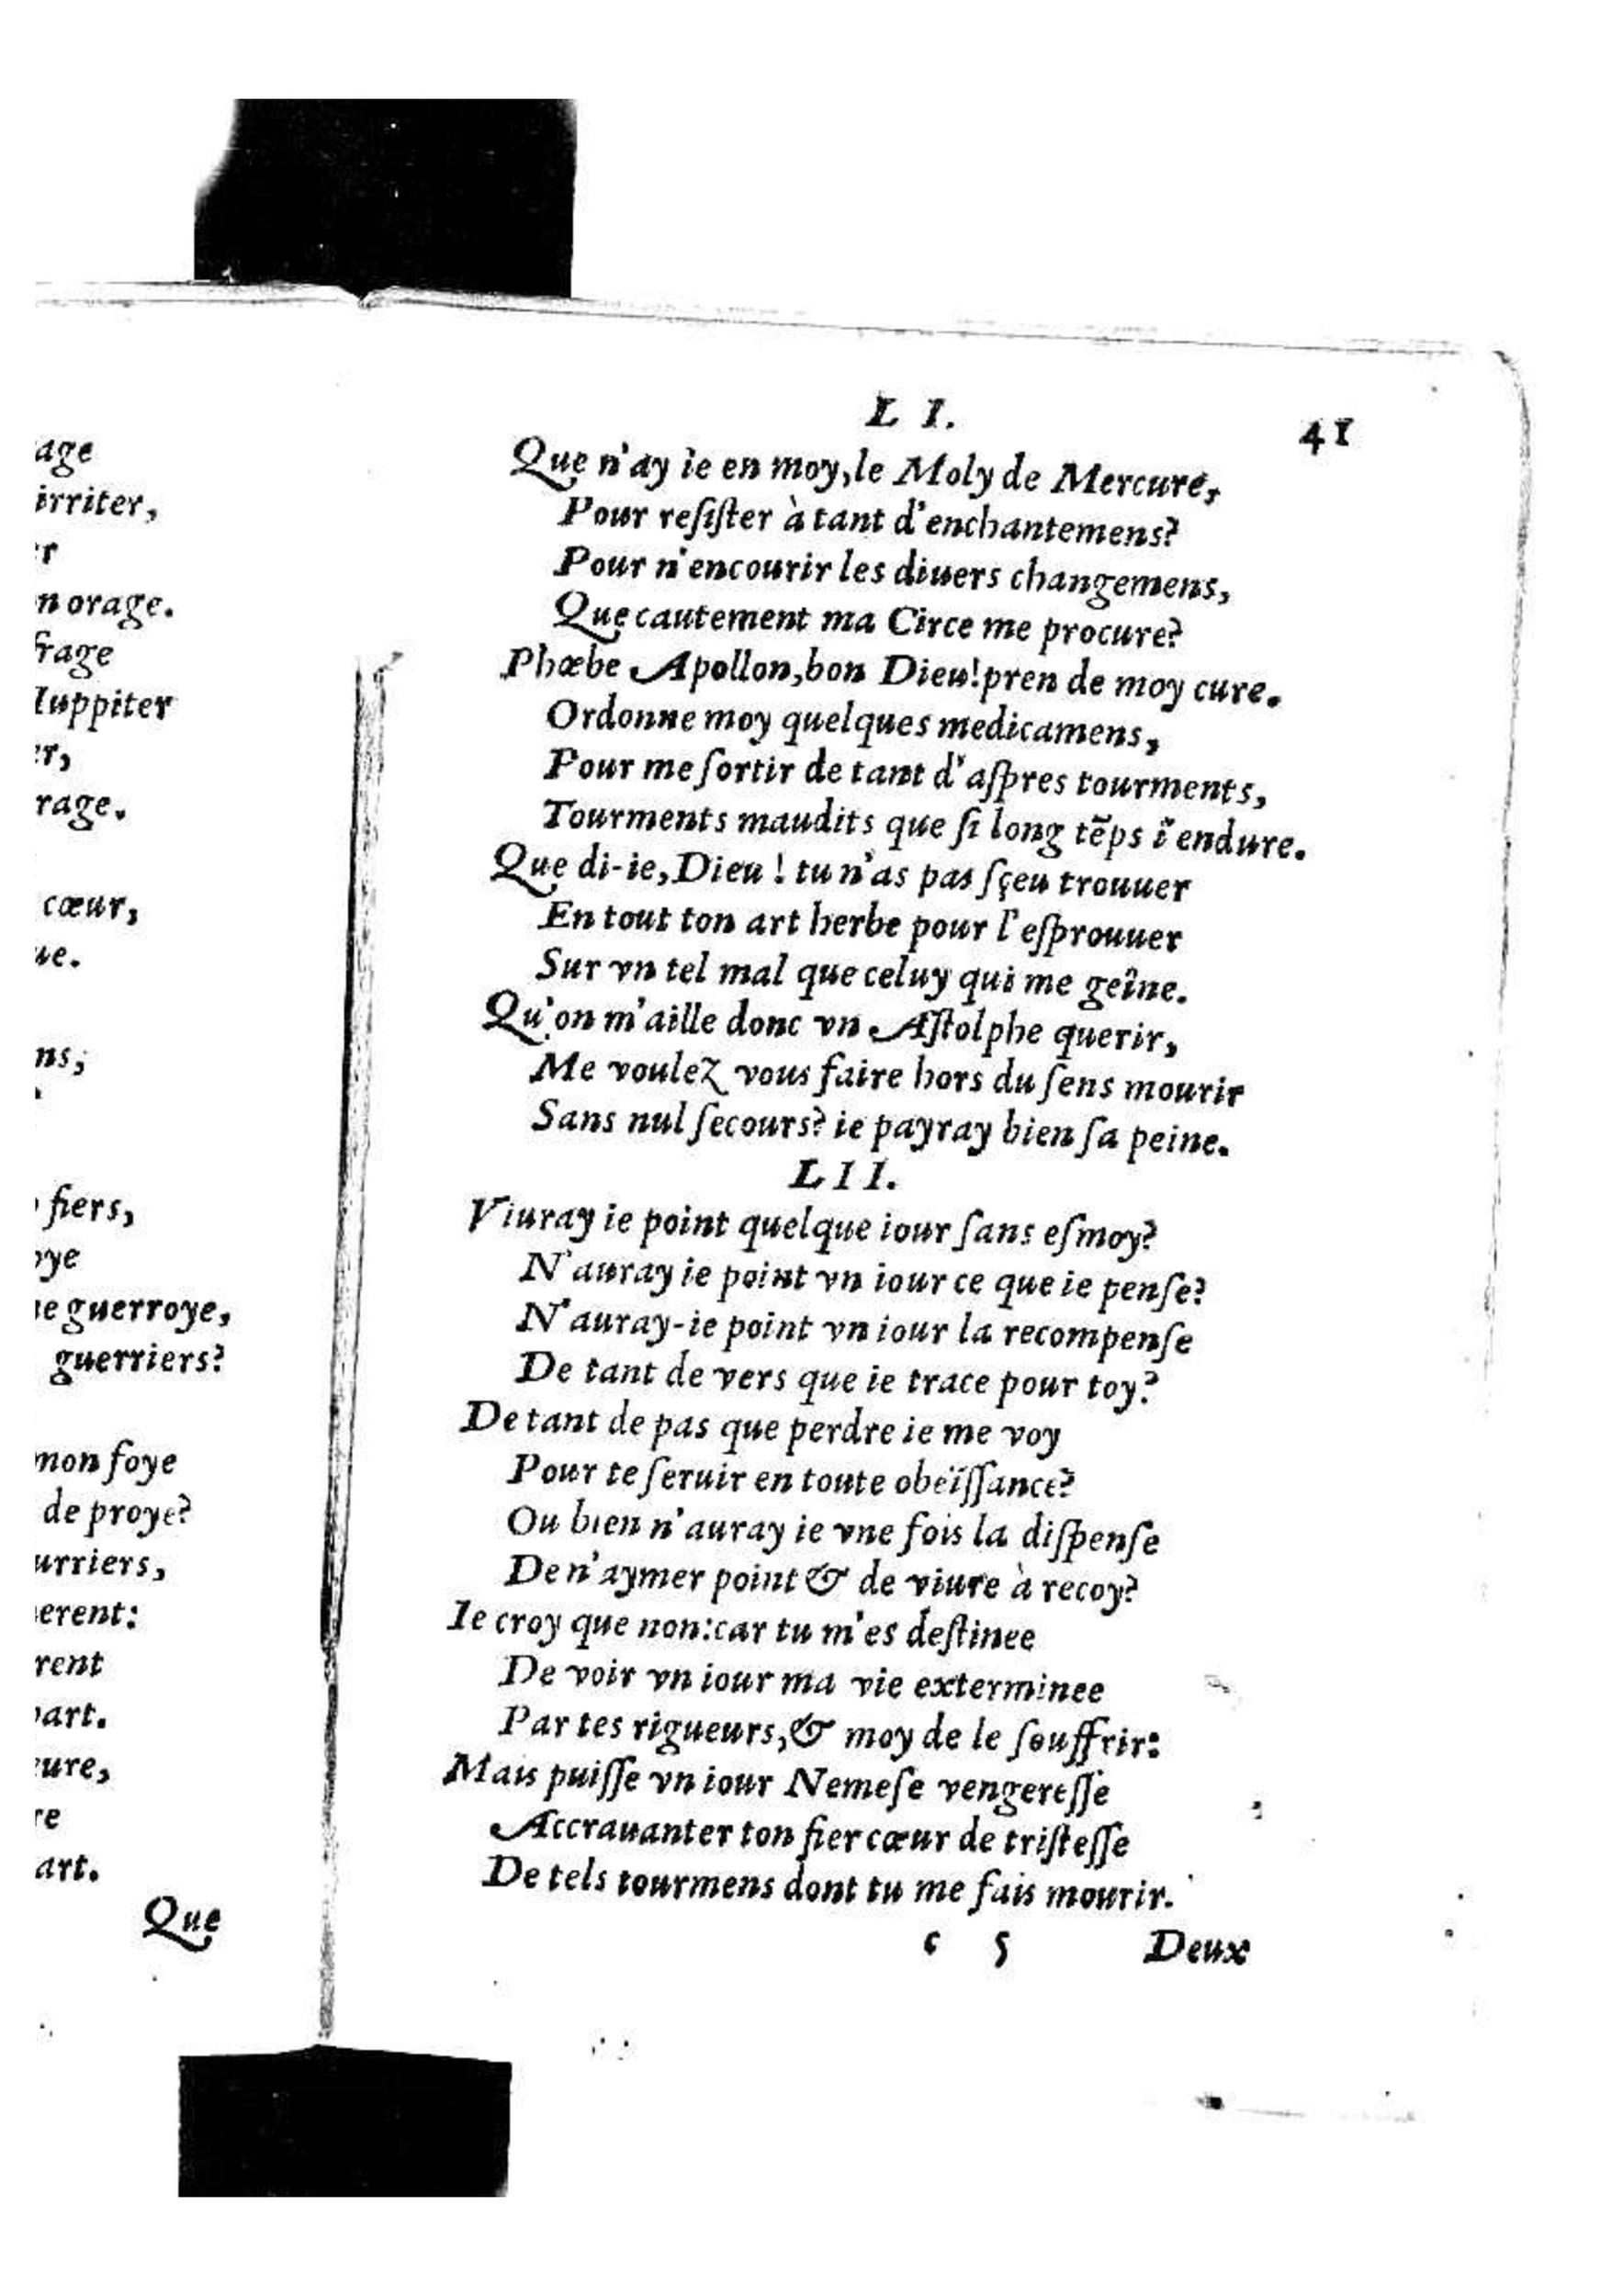 age
irriter,
r
n orage.
frage
Iuppiter
er,
rage.
cœur,
ue.
ns,
fiers,
oye
ne guerroye,
guerriers?
mon foye
de proye?
urriers,
erent:
rent
part.
ure,
re
art.
Que
L I.
41
Que n'ay ie en moy, le Moly de Mercure,
Pour reſiſter à tant d'enchantemens?
Pour n'encourir les diuers changemens,
Que cautement ma Circe me procure?
Phœbe Apollon, bon Dieu! pren de moy cure.
Ordonne moy quelques medicamens,
Pour me ſortir de tant d'aſpres tourments,
Tourments maudits que ſi long tẽps i'endure.
Que di-ie, Dieu! tu n'as pas ſçeu trouuer
En tout ton art herbe pour l'eſprouuer
Sur vn tel mal que celuy qui me geîne.
Qu'on m'aille donc vn Aſtolphe querir,
Me voulez vous faire hors du ſens mourir
Sans nul ſecours? ie payray bien ſa peine.
L I I.
Viuray ie point quelque iour ſans eſmoy?
N'auray ie point vn iour ce que ie penſe?
N'auray-ie point vn iour la recompenſe
De tant de vers que ie trace pour toy?
De tant de pas que perdre ie me voy
Pour te ſeruir en toute obeïſſance?
Ou bien n'auray ie vne fois la diſpenſe
De n'aymer point & de viure à recoy?
Ie croy que non: car tu m'es deſtinee
De voir vn iour ma vie exterminee
Par tes rigueurs, & moy de le ſouffrir:
Mais puiſſe vn iour Nemeſe vengereſſe
Accrauanter ton fier cœur de triſteſſe
De tels tourmens dont tu me fais mourir.
c 5
Deux